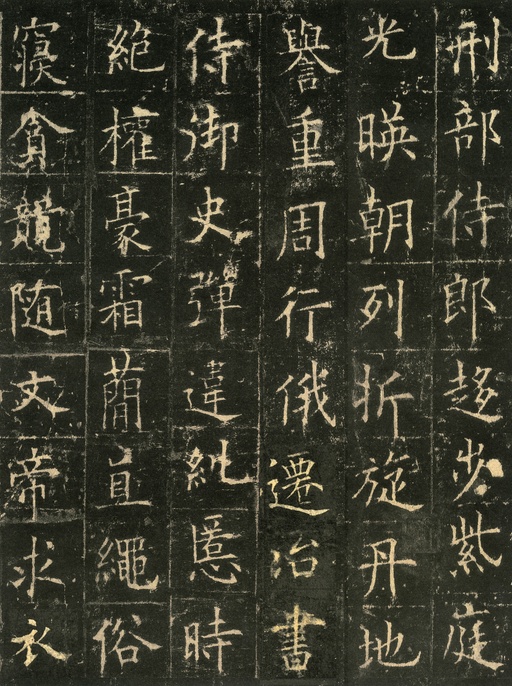 刑部侍郎趍步紫庭
光暎朝列折旋丹地
譽重周行俄遷治書
侍御史彈違糺慝時
絶權豪霜蕳直繩俗
寝貪競随文帝求衣